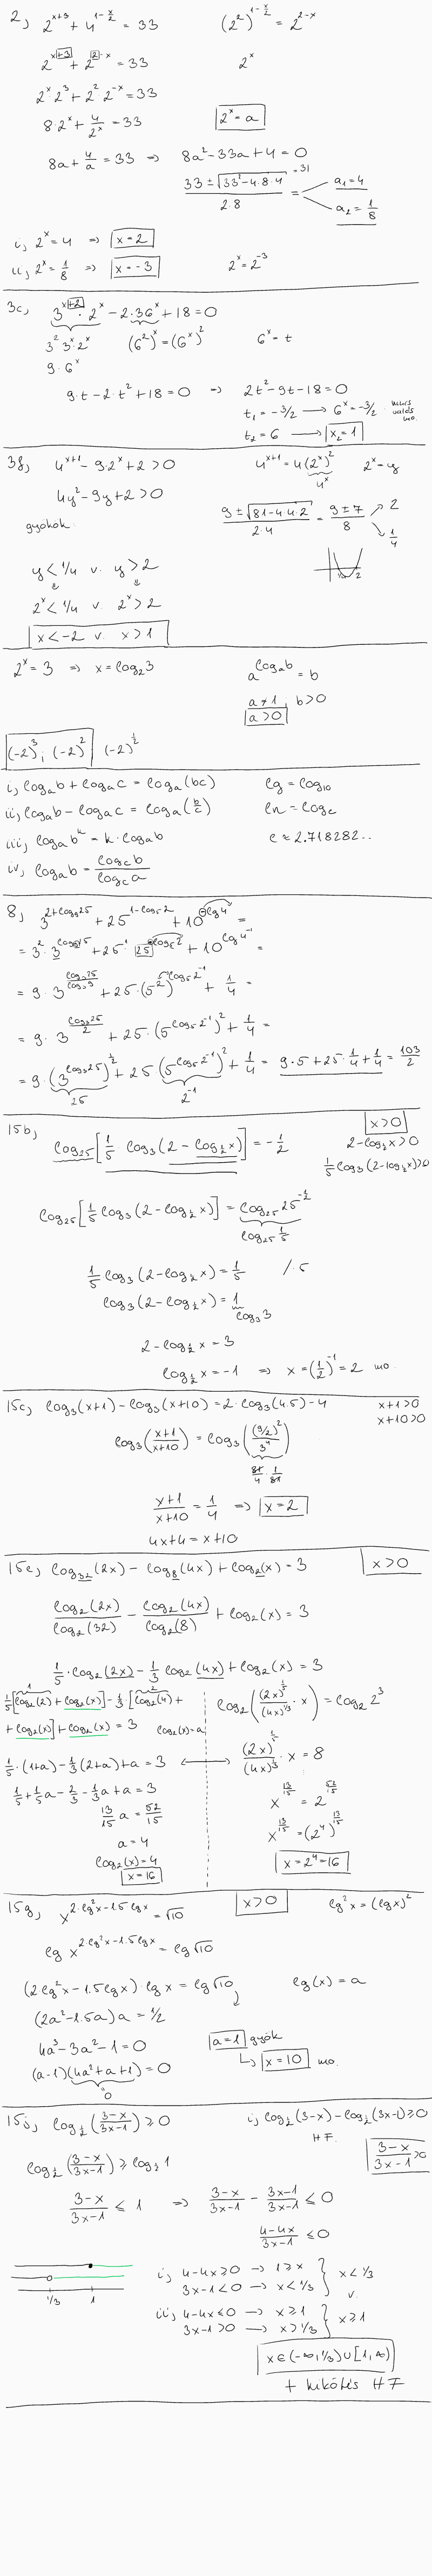 2, 2^{x+3} + 4^{1-x/2} = 33    (2^2)^{1-x/2} = 2^{2-x}
2^{x+3} + 2^{2-x} = 33    2^x
2^x·2^3 + 2^2·2^{-x} = 33
8·2^x + 4/2^x = 33    2^x = a
8a + 4/a = 33 ⇒ 8a^2 - 33a + 4 = 0
(33 ± √(33^2 - 4·8·4))/(2·8) =    = 31    a_1 = 4
a_2 = 1/8
i, 2^x = 4 ⇒ x = 2
ii, 2^x = 1/8 ⇒ x = -3    2^x = 2^{-3}
3c, 3^{x+2}·2^x - 2·36^x + 18 = 0
3^2·3^x·2^x    (6^2)^x = (6^x)^2    6^x = t
9·6^x
9·t - 2·t^2 + 18 = 0 ⇒ 2t^2 - 9t - 18 = 0
t_1 = -3/2 → 6^x = -3/2 nincs valós mo.
t_2 = 6 → x_2 = 1
3f, 4^{x+1} - 9·2^x + 2 > 0    4^{x+1} = 4(2^x)^2    2^x = y
4^x
4y^2 - 9y + 2 > 0
gyökök:    (9 ± √(81-4·4·2))/(2·4) = (9 ± 7)/8    2
1/4
y < 1/4 v. y > 2    1/4 2
⇓ ⇓
2^x < 1/4 v. 2^x > 2
x < -2 v. x > 1
2^x = 3 ⇒ x = log_2 3    a^{log_a b} = b
a ≠ 1, b > 0
a > 0
(-2)^3; (-2)^2    (-2)^{1/2}
i, log_a b + log_a c = log_a (bc)    lg = log_10
ii, log_a b - log_a c = log_a (b/c)    ln = log_e
iii, log_a b^k = k·log_a b    e ≈ 2.718282..
iv, log_a b = log_c b / log_c a
8, 3^{2+log_9 25} + 25^{1-log_5 2} + 10^{-lg 4} =
= 3^2·3^{log_9 25} + 25^1·25^{-log_5 2} + 10^{lg 4^{-1}} =
= 9·3^{log_3 25/log_3 9} + 25·(5^2)^{log_5 2^{-1}} + 1/4 =
= 9·3^{log_3 25/2} + 25·(5^{log_5 2^{-1}})^2 + 1/4 =
= 9·(3^{log_3 25})^{1/2} + 25(5^{log_5 2^{-1}})^2 + 1/4 = 9·5 + 25·1/4 + 1/4 = 103/2
25    2^{-1}
15b,    x > 0
log_25 [1/5 log_3 (2 - log_{1/2} x)] = -1/2    2 - log_{1/2} x > 0
1/5 log_3 (2 - log_{1/2} x) > 0
log_25 [1/5 log_3 (2 - log_{1/2} x)] = log_25 25^{-1/2}
log_25 1/5
1/5 log_3 (2 - log_{1/2} x) = 1/5    /·5
log_3 (2 - log_{1/2} x) = 1
log_3 3
2 - log_{1/2} x = 3
log_{1/2} x = -1 ⇒ x = (1/2)^{-1} = 2 mo.
15c, log_3 (x+1) - log_3 (x+10) = 2·log_3 (4.5) - 4    x+1 > 0
x+10 > 0
log_3 ((x+1)/(x+10)) = log_3 ((9/2)^2/3^4)
81/4 · 1/81
(x+1)/(x+10) = 1/4 ⇒ x = 2
4x+4 = x+10
15e, log_32 (2x) - log_8 (4x) + log_2 (x) = 3    x > 0
log_2 (2x)/log_2 (32) - log_2 (4x)/log_2 (8) + log_2 (x) = 3
1/5·log_2 (2x) - 1/3 log_2 (4x) + log_2 (x) = 3
1 2
1/5[log_2 (2) + log_2 (x)] - 1/3·[log_2 (4) +
+ log_2 (x)] + log_2 (x) = 3    log_2 (x) = a
1/5·(1+a) - 1/3(2+a) + a = 3
1/5 + 1/5 a - 2/3 - 1/3 a + a = 3
13/15 a = 52/15
a = 4
log_2 (x) = 4
x = 16
log_2 ((2x)^{1/5}/(4x)^{1/3} · x) = log_2 2^3
(2x)^{1/5}/(4x)^{1/3} · x = 8
x^{13/15} = 2^{52/15}
x^{13/15} = (2^4)^{13/15}
x = 2^4 = 16
15g, x^{2·lg^2 x - 1.5 lg x} = √10    x > 0    lg^2 x = (lg x)^2
lg x^{2·lg^2 x - 1.5 lg x} = lg √10
(2·lg^2 x - 1.5 lg x)·lg x = lg √10    lg(x) = a
(2a^2 - 1.5a) a = 1/2
4a^3 - 3a^2 - 1 = 0    a = 1 gyök
(a-1)(4a^2 + a + 1) = 0    x = 10 mo.
0
15j, log_{1/2} ((3-x)/(3x-1)) ≥ 0    i, log_{1/2} (3-x) - log_{1/2} (3x-1) ≥ 0
HF.
log_{1/2} ((3-x)/(3x-1)) ≥ log_{1/2} 1    (3-x)/(3x-1) > 0
(3-x)/(3x-1) ≤ 1 ⇒ (3-x)/(3x-1) - (3x-1)/(3x-1) ≤ 0
(4-4x)/(3x-1) ≤ 0
i, 4-4x ≥ 0 → 1 ≥ x
3x-1 < 0 → x < 1/3 } x < 1/3
1/3 1    v.
ii, 4-4x ≤ 0 → x ≥ 1
3x-1 > 0 → x > 1/3 } x ≥ 1
x ∈ (-∞, 1/3) ∪ [1, ∞)
+ kikötés HF